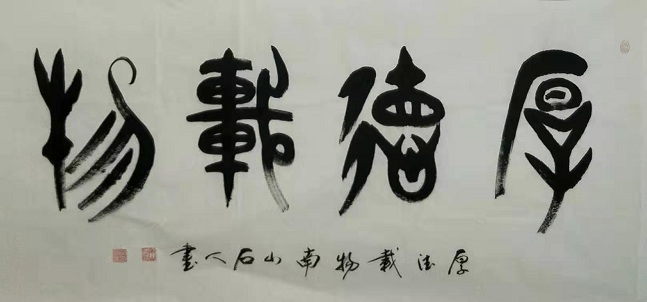 厚德載物
厚德載物南山石人書